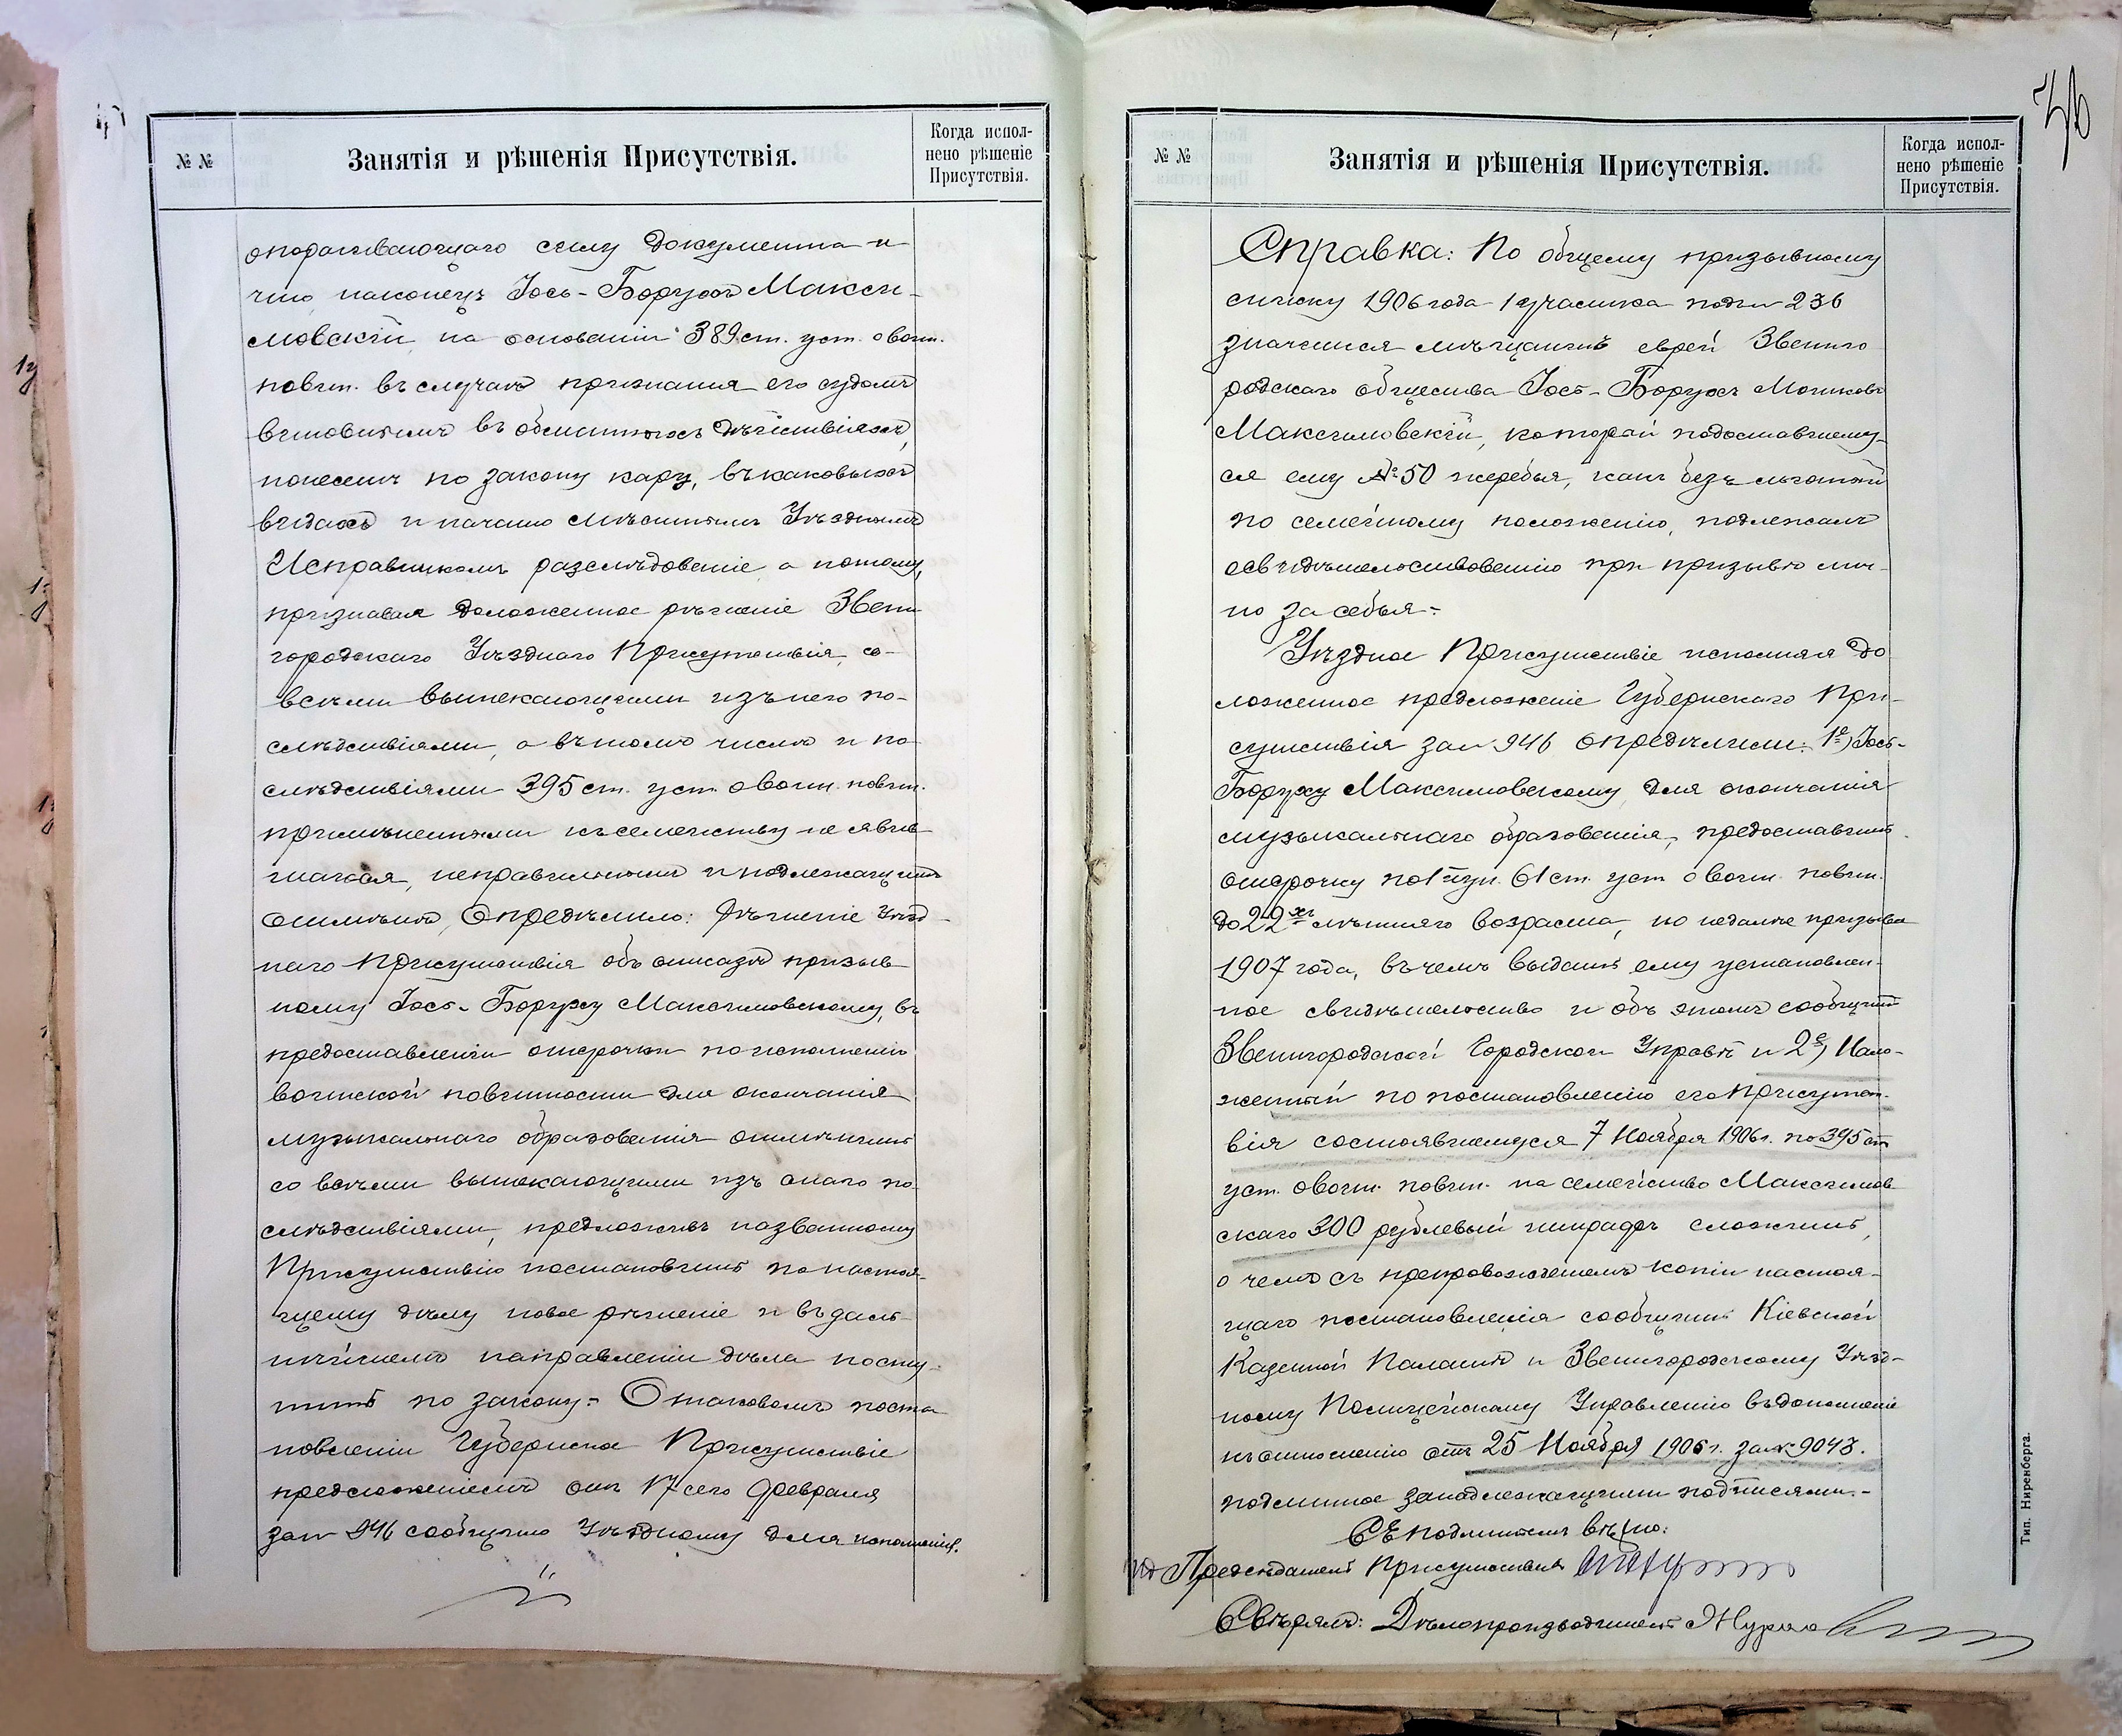 № №
Занятія и рѣшенія Присутствія.
Когда испол-
нено рѣшеніе
Присутствія.
опорачивающаго силу документа и
что, наконецъ Іось-Борухъ Макси-
мовскій, на основаніи 389 ст. уст. о воин.
повин. въ случаѣ признанія его судомъ
виновнымъ въ обманныхъ дѣйствіяхъ,
понесетъ по закону кару, въ каковыхъ
видахъ и начато мѣстнымъ Уѣзднымъ
Исправникомъ разслѣдованіе, а потому,
признавая доложенное рѣшеніе Звени
городскаго Уѣзднаго Присутствія, со
всѣми вытекающими изъ него по-
слѣдствіями, а въ томъ числѣ и по
слѣдствіями 395 ст. уст. о воин. повин.
примѣненными къ семейству не явив
шагося, неправильнымъ и подлежащимъ
отмѣнѣ, Опредѣлило: рѣшеніе Уѣзд-
наго Присутствія объ отказѣ призыв
ному Іось-Боруху Максимовскому, въ
предоставленіи отсрочки по исполненію
воинской повинности для окончанія
музыкальнаго образованія отмѣнить
со всѣми вытекающими изъ онаго по-
слѣдствіями, предложивъ названному
Присутствію постановить по настоя-
щему дѣлу новое рѣшеніе и въ даль-
нѣйшемъ направленіи дѣла посту-
пить по закону. О таковомъ поста
новленіи Губернское Присутствіе
предложеніемъ отъ 17 сего Февраля
за № 946 сообщило Уѣздному для исполненія.
№ №
Занятія и рѣшенія Присутствія.
Когда испол-
нено рѣшеніе
Присутствія.
Справка: По общему призывному
списку 1906 года 1 участка подъ № 236
значится мѣщанинъ еврей Звениго
родскаго общества Іось-Борухъ Мошковъ
Максимовскій, который по доставшему-
ся ему № 50 жеребья, какъ безъ льготный
по семейному положенію, подлежалъ
освидѣтельствованію при призывѣ лич-
но за себя.-
Уѣздное Присутствіе исполняя до
ложенное предложеніе Губернскаго При-
сутствія за № 946 опредѣлили: 1е) Іось-
Боруху Максимовскому, для окончанія
музыкальнаго образованія, предоставить
отсрочку по 1 пун. 61 ст. уст. о воин. повин.
до 22хъ лѣтняго возраста, но не далѣе призыва
1907 года, въ чемъ выдать ему установлен-
ное свидѣтельство и объ этомъ сообщить
Звенигородской Городской Управѣ и 2е) Нало-
женный по постановленію его Присутст-
вія состоявшемуся 7 Ноября 1906 г. по 395 ст
уст. о воин. повин. на семейство Максимов
скаго 300 рублевый штрафъ сложить,
о чемъ съ препровожденіемъ копіи настоя-
щаго постановленія сообщить Кіевской
Казенной Палатѣ и Звенигородскому Уѣзд-
ному Полицейскому Управленію въ дополненіе
къ отношенію отъ 25 Ноября 1906 г. за № 9043.
подлинное за надлежащими подписями.-
Съ подлиннымъ вѣрно:
Предсѣдатель Присутствія
Свѣрялъ: Дѣлопроизводитель
Тип. Ниренберга.